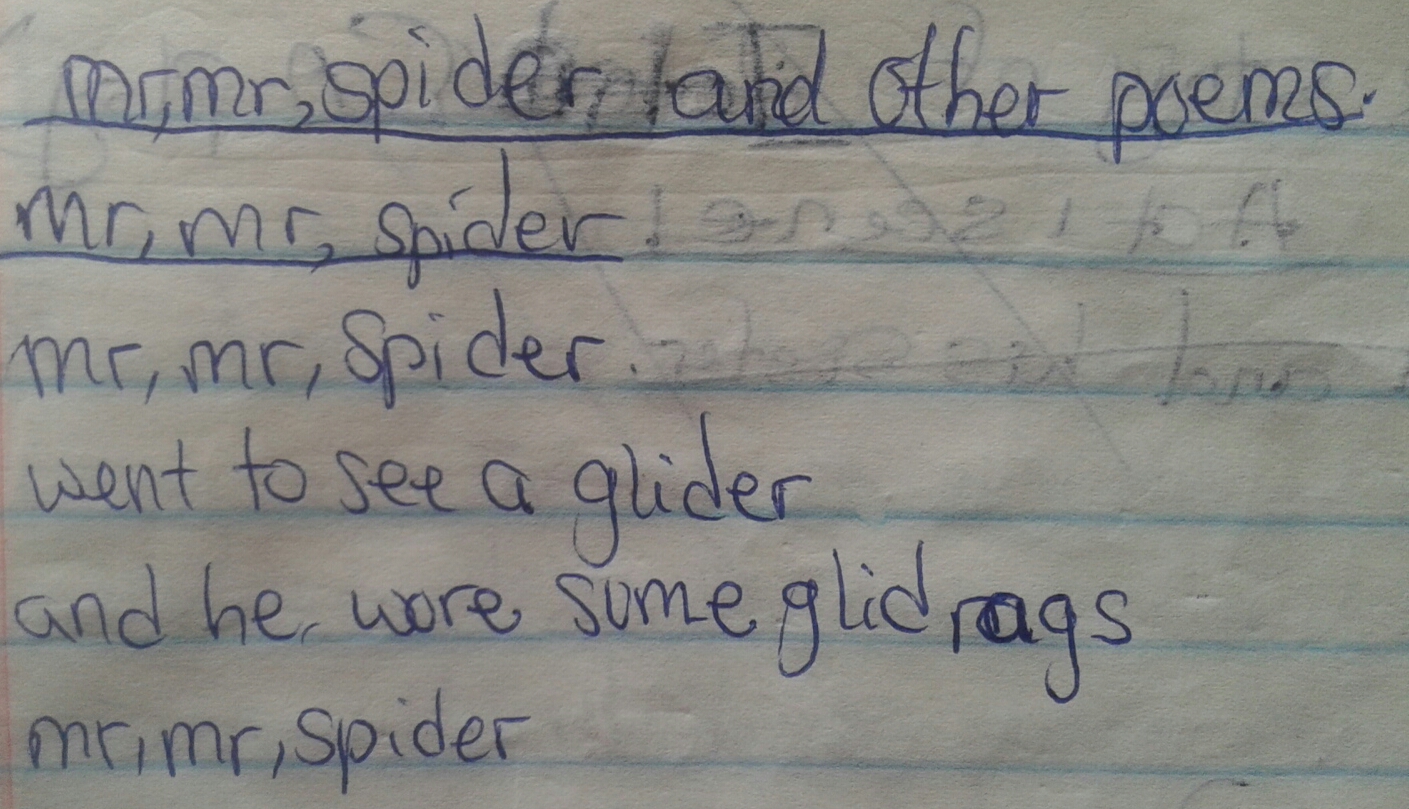 mr,mr,spider and other poems.
mr, mr, spider
mr, mr, Spider.
went to see a glider
and he wore some glid rags
mr, mr, spider